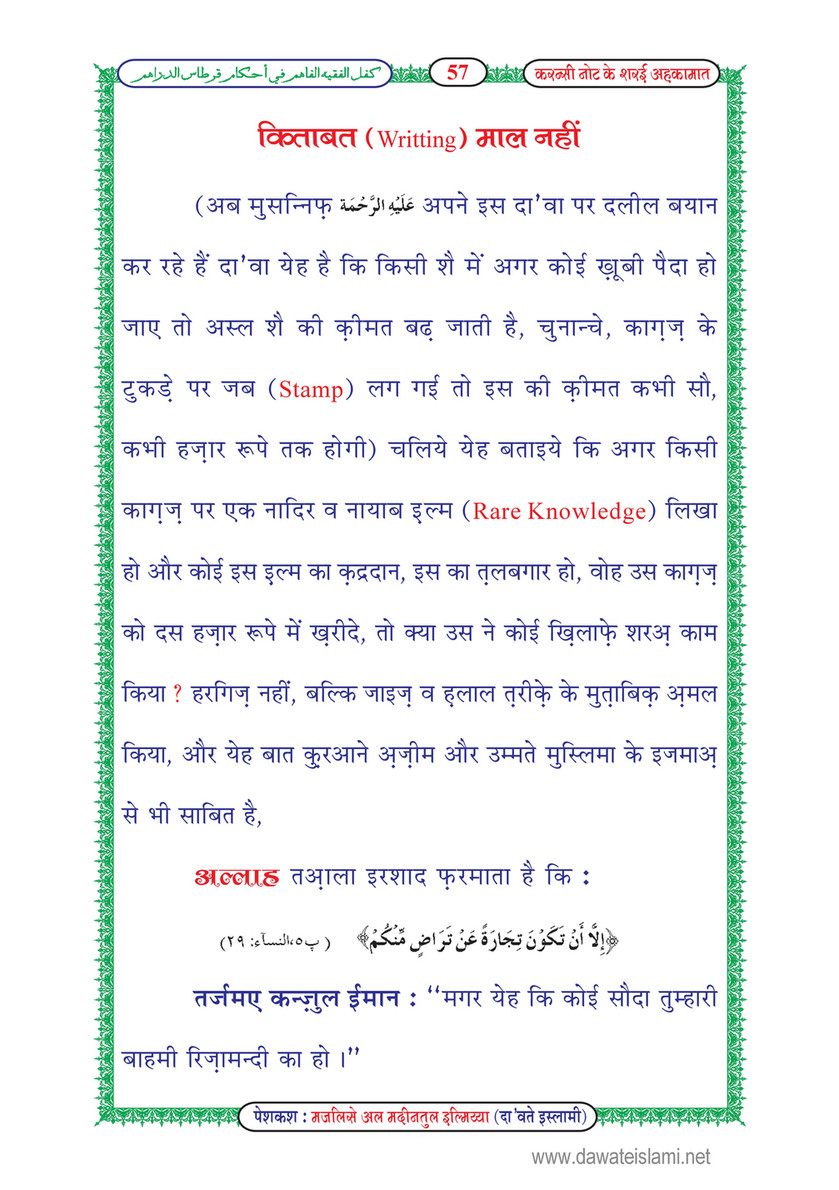 كفل الفقيه الفاهم في أحكام قرطاس الدراهم 57 करन्सी नोट के शरई अहकामात
किताबत (Writting) माल नहीं
(अब मुसन्निफ़ عَلَيْهِ الرَّحْمَة अपने इस दा'वा पर दलील बयान
कर रहे हैं दा'वा येह है कि किसी शै में अगर कोई ख़ूबी पैदा हो
जाए तो अस्ल शै की क़ीमत बढ़ जाती है, चुनान्चे, काग़ज़ के
टुकड़े पर जब (Stamp) लग गई तो इस की क़ीमत कभी सौ,
कभी हज़ार रूपे तक होगी) चलिये येह बताइये कि अगर किसी
काग़ज़ पर एक नादिर व नायाब इल्म (Rare Knowledge) लिखा
हो और कोई इस इल्म का क़द्रदान, इस का त़लबगार हो, वोह उस काग़ज़
को दस हज़ार रूपे में ख़रीदे, तो क्या उस ने कोई ख़िलाफ़े शरअ़ काम
किया ? हरगिज़ नहीं, बल्कि जाइज़ व ह़लाल त़रीक़े के मुत़ाबिक़ अ़मल
किया, और येह बात क़ुरआने अ़ज़ीम और उम्मते मुस्लिमा के इजमाअ़
से भी साबित है,
अल्लाह तआ़ला इरशाद फ़रमाता है कि :
﴿اِلَّا أَنْ تَكُوْنَ تِجَارَةً عَنْ تَرَاضٍ مِّنْكُمْ﴾ (پ٥،النسآء: ٢٩)
तर्जमए कन्ज़ुल ईमान : ‘‘मगर येह कि कोई सौदा तुम्हारी
बाहमी रिज़ामन्दी का हो ।’’
पेशकश : मजलिसे अल मदीनतुल इल्मिय्या (दा'वते इस्लामी)
www.dawateislami.net